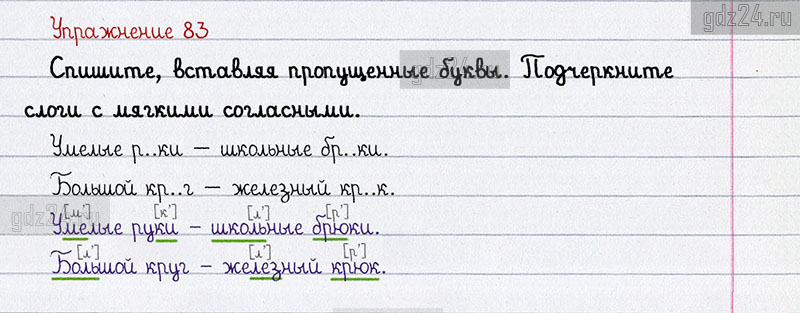 Упражнение 83
gdz24.ru
Спишите, вставляя пропущенные буквы. Подчеркните
gdz24.ru
слоги с мягкими согласными.
Умелые р..ки – школьные бр..ки.
Большой кр..г – железный кр..к.
gdz24.ru
[м'] [к'] [л'] [р']
Умелые руки – школьные брюки.
[л'] [л'] [р']
Большой круг – железный крюк.